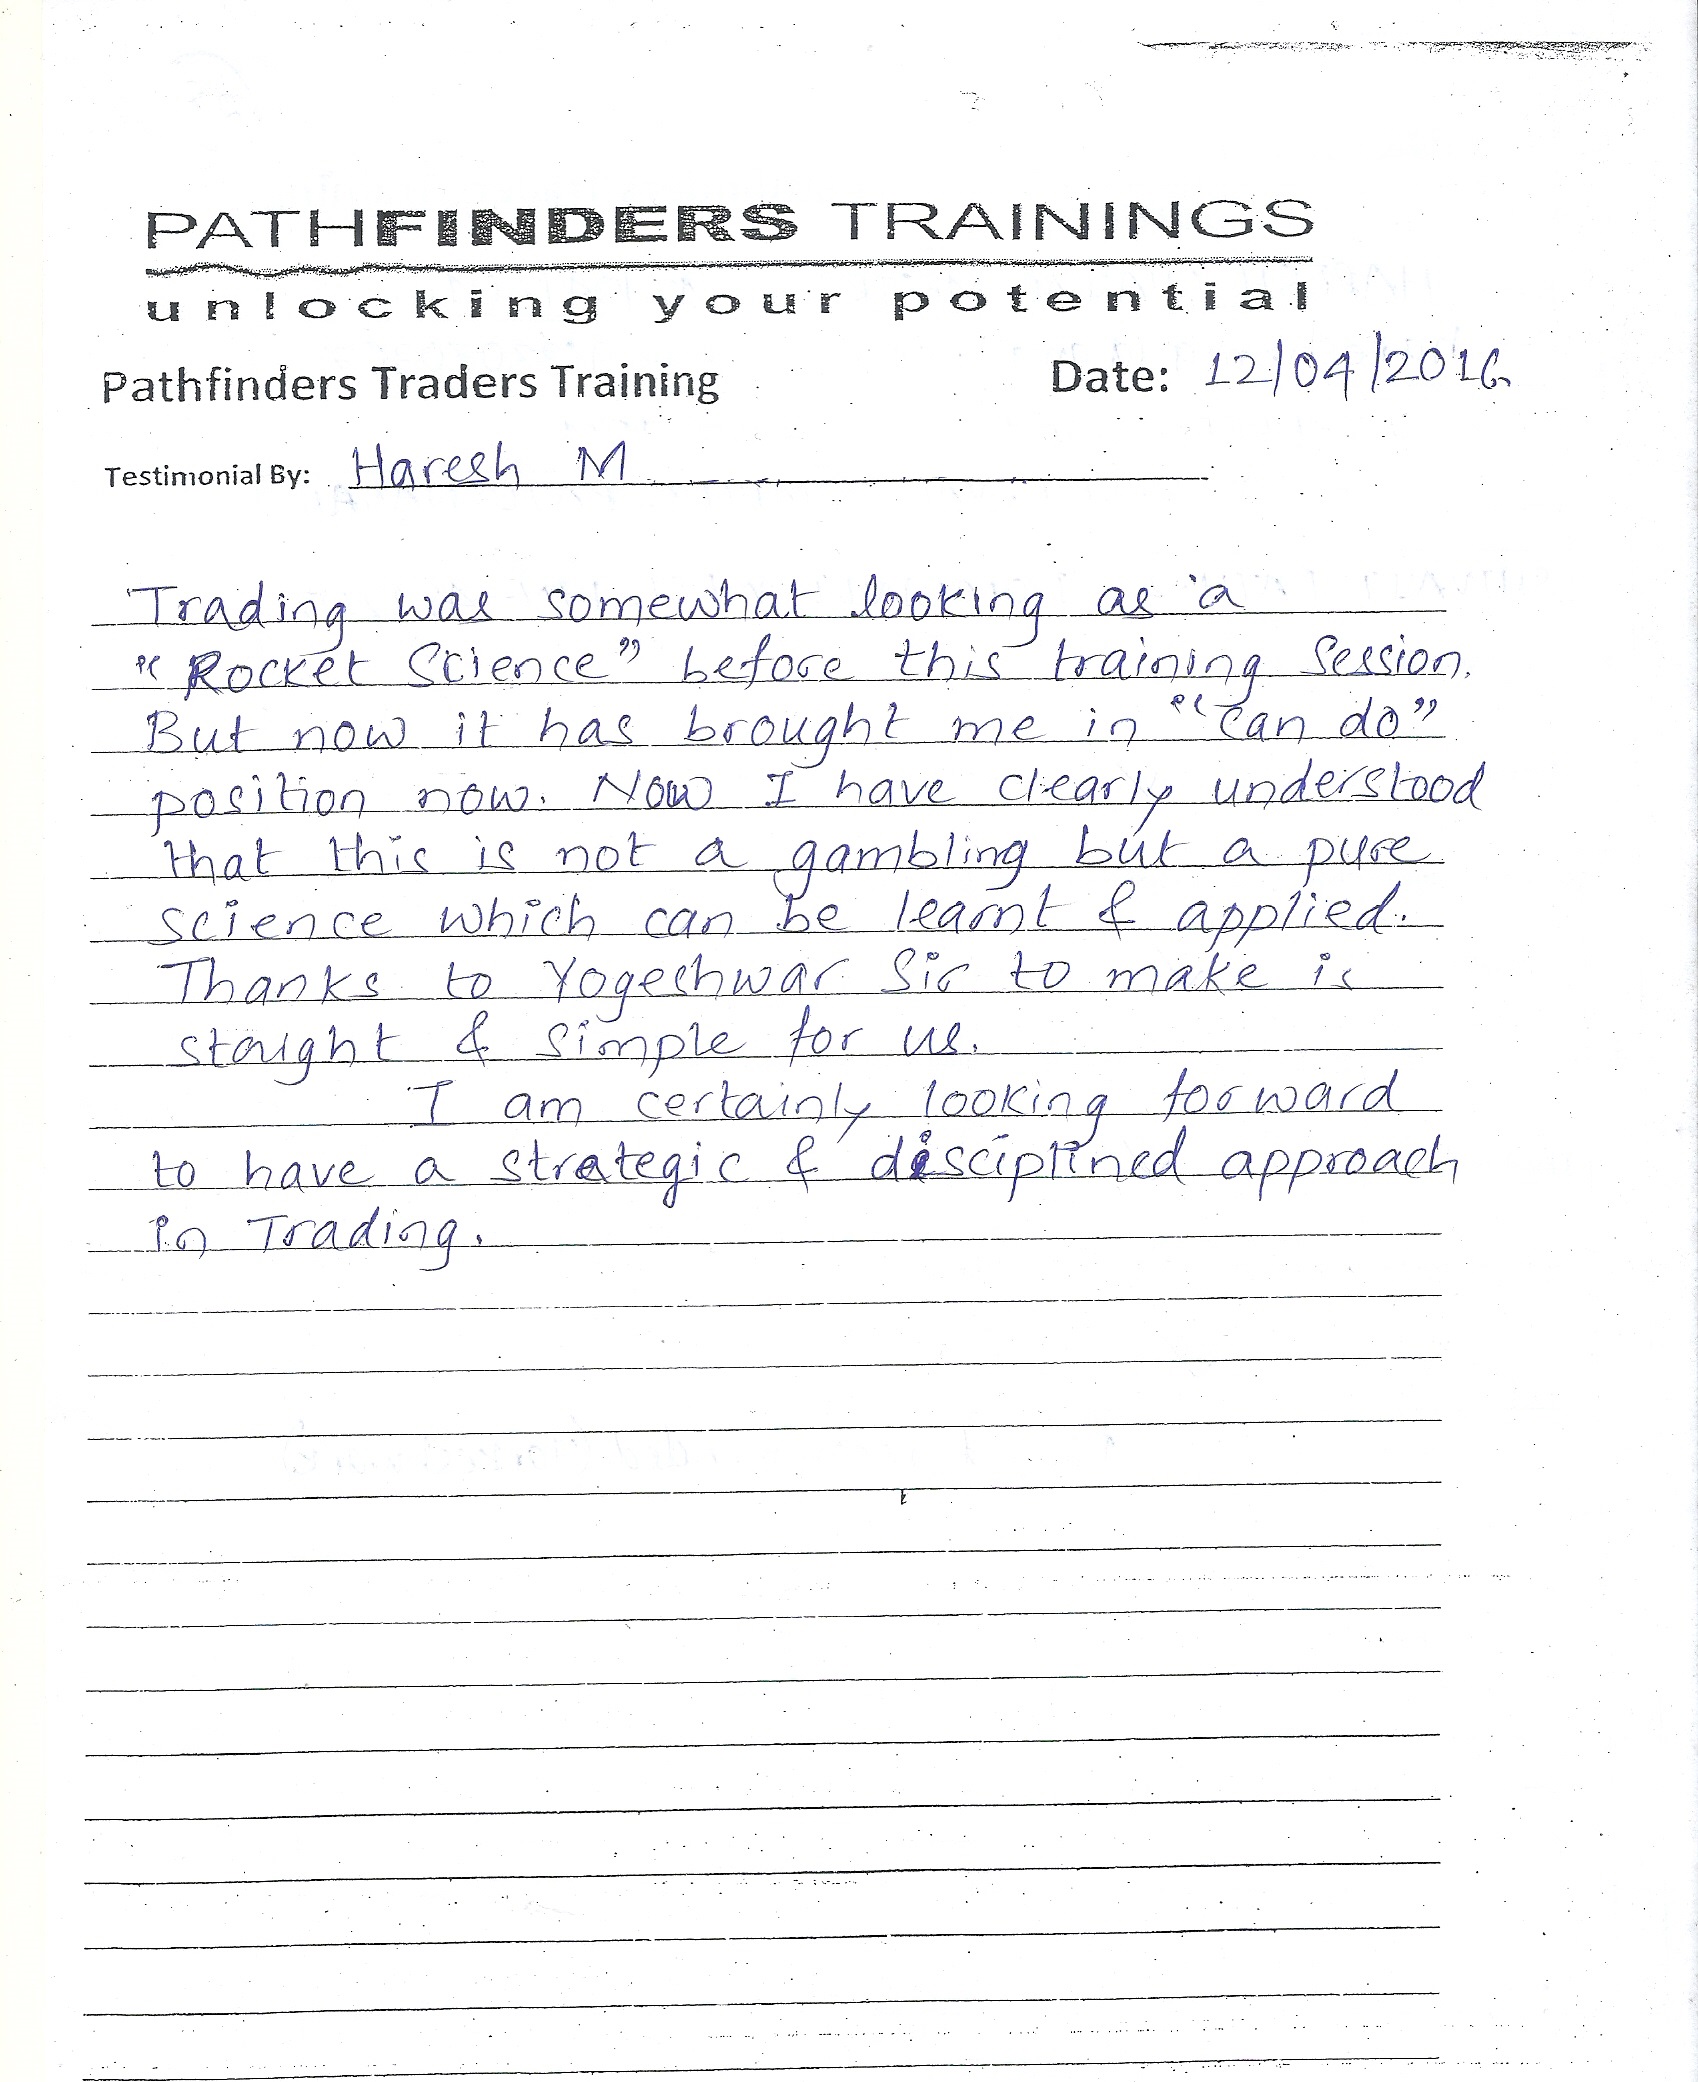 PATHFINDERS TRAININGS
unlocking your potential
Pathfinders Traders Training Date: 12/04/2016
Testimonial By: Haresh M
Trading was somewhat looking as a
"Rocket Science" before this training Session.
But now it has brought me in "can do"
position now. Now I have clearly understood
that this is not a gambling but a pure
science which can be learnt & applied.
Thanks to Yogeshwar Sir to make is
staight & simple for us.
I am certainly looking forward
to have a strategic & disciplined approach
in Trading.